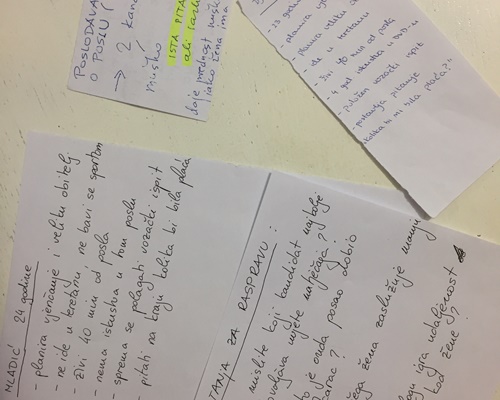 POSLODAVA
O POSLU
→ 2 kand
muško
ISTA PITA
ali
daje prednost mušk
iako žena ima
planira
planira veliku
ide u teretanu
živi 10 min od posla
4 god iskustva
položen vozački ispit
postavlja pitanje
kolika bi mi bila plaća
MLADIĆ 24 godine
- planira vjenčanje i veliku obitelj
- ne ide u teretanu, ne bavi se sportom
- živi 40 min od posla
- nema iskustva u tom poslu
- sprema se polagati vozački ispit
- pitati na kraju kolika bi bila plaća
TANJA ZA RASPRAVU:
mislite koji kandidat najbolje
ovoljava uvjete natječaja?
to je onda posao dobio
arac?
čega žena zaslužuje manju
igra udaljenost
kod žene?